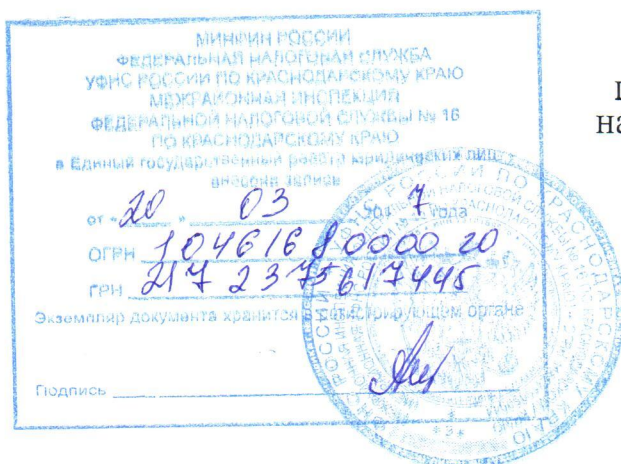 МИНФИН РОССИИ
ФЕДЕРАЛЬНАЯ НАЛОГОВАЯ СЛУЖБА
УФНС РОССИИ ПО КРАСНОДАРСКОМУ КРАЮ
МЕЖРАЙОННАЯ ИНСПЕКЦИЯ
ФЕДЕРАЛЬНОЙ НАЛОГОВОЙ СЛУЖБЫ № 16
ПО КРАСНОДАРСКОМУ КРАЮ
в Единый государственный реестр юридических лиц
внесена запись
от «20» 03 2017 года
ОГРН 1046168000020
ГРН 2172375617445
Экземпляр документа хранится в регистрирующем органе
Подпись
на
РОССИИ ПО КРАСНОДАРСКОМУ КРАЮ